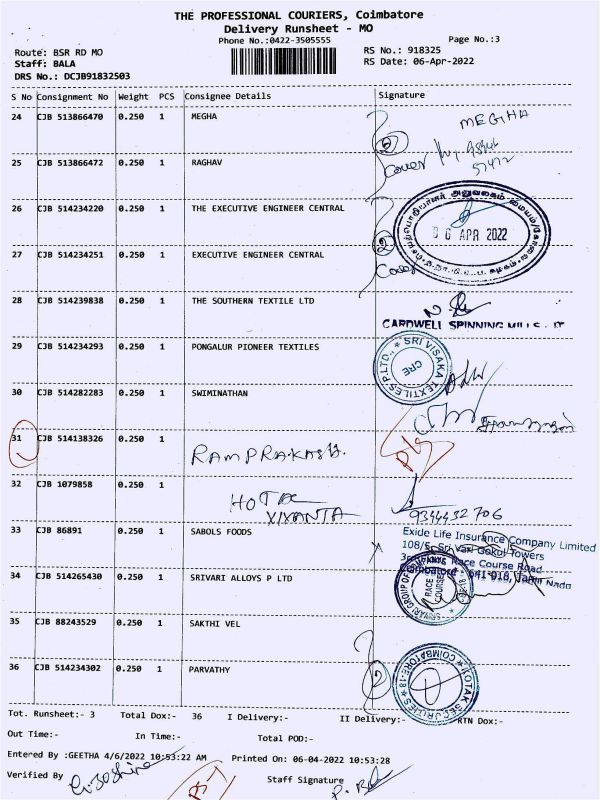 THE PROFESSIONAL COURIERS, Coimbatore
Delivery Runsheet - MO
Phone No.:0422-3505555
Page No.:3
Route: BSR RD MO
RS No.: 918325
Staff: BALA
RS Date: 06-Apr-2022
DRS No.: DCJB91832503
S No Consignment No Weight PCS Consignee Details Signature
24 CJB 513866470 0.250 1 MEGHA
MEGHA
25 CJB 513866472 0.250 1 RAGHAV
26 CJB 514234220 0.250 1 THE EXECUTIVE ENGINEER CENTRAL
06 APR 2022
27 CJB 514234251 0.250 1 EXECUTIVE ENGINEER CENTRAL
28 CJB 514239838 0.250 1 THE SOUTHERN TEXTILE LTD
CARDWELL SPINNING MILLS
29 CJB 514234293 0.250 1 PONGALUR PIONEER TEXTILES
SRI VISAKA TEXTILES P LTD.,
CRE
30 CJB 514282283 0.250 1 SWIMINATHAN
31 CJB 514138326 0.250 1 RAMPRAKASH.
32 CJB 1079858 0.250 1 HOTAL
VIVANTA
9344432706
33 CJB 86891 0.250 1 SABOLS FOODS
Exide Life Insurance Company Limited
108/5, Sri Vari Gokul Towers
3rd Race Course Road
Coimbatore 641 018, Tamil Nadu
34 CJB 514265430 0.250 1 SRIVARI ALLOYS P LTD
SRIVARI GROUP OF
RACE COURSE
35 CJB 88243529 0.250 1 SAKTHI VEL
36 CJB 514234302 0.250 1 PARVATHY
KOTAK SECURITIES
COIMBATORE-18
Tot. Runsheet:- 3 Total Dox:- 36 I Delivery:- II Delivery:- RTN Dox:-
Out Time:- In Time:- Total POD:-
Entered By :GEETHA 4/6/2022 10:53:22 AM Printed On: 06-04-2022 10:53:28
Verified By Staff Signature